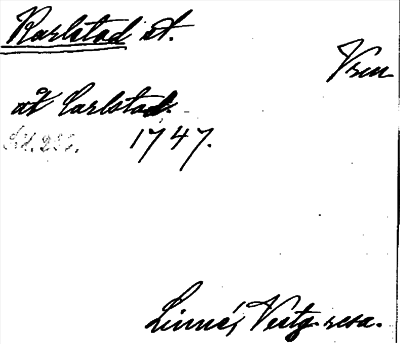 Karlstad st.
Vrm
at Carlstad.
1747.
Linné, Vestg. resa.